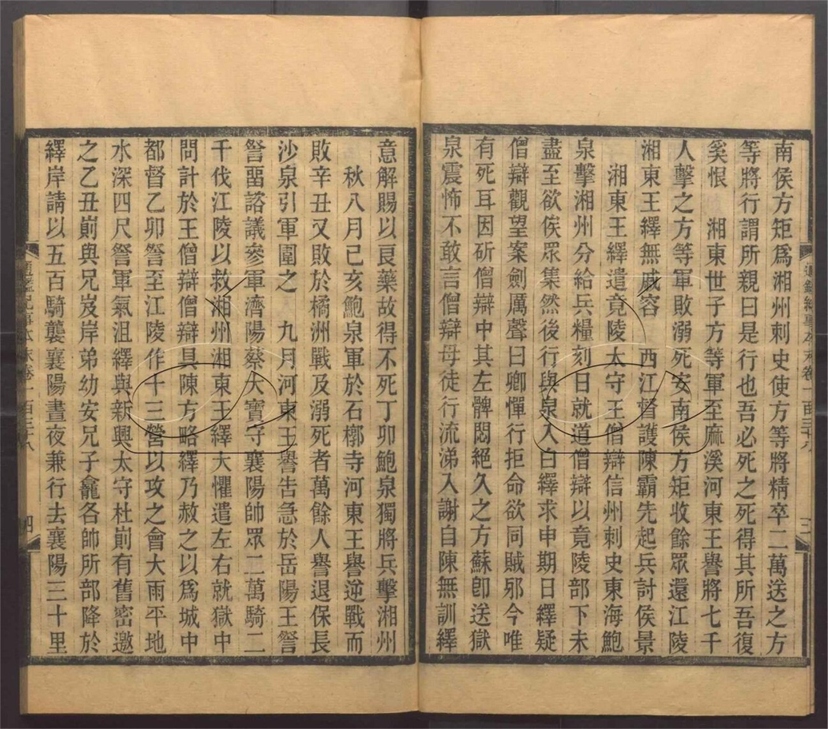 南侯方矩爲湘州刺史使方等將精卒二萬送之方
等將行謂所親曰是行也吾必死之死得其所吾復
奚恨　湘東世子方等軍至麻溪河東王譽將七千
人擊之方等軍敗溺死安南侯方矩收餘眾還江陵
湘東王繹無戚容　西江督護陳霸先起兵討侯景
湘東王繹遣竟陵太守王僧辯信州刺史東海鮑
泉擊湘州分給兵糧刻日就道僧辯以竟陵部下未
盡至欲俟眾集然後行與泉入白繹求申期日繹疑
僧辯觀望案劍厲聲曰卿憚行拒命欲同賊邪今唯
有死耳因斫僧辯中其左髀悶絕久之方蘇卽送獄
泉震怖不敢言僧辯母徒行流涕入謝自陳無訓繹
通鑑紀事本末卷一百三十八
三
意解賜以良藥故得不死丁卯鮑泉獨將兵擊湘州
秋八月己亥鮑泉軍於石槨寺河東王譽逆戰而
敗辛丑又敗於橘洲戰及溺死者萬餘人譽退保長
沙泉引軍圍之　九月河東王譽告急於岳陽王詧
詧畱諮議參軍濟陽蔡大寶守襄陽帥眾二萬騎二
千伐江陵以救湘州湘東王繹大懼遣左右就獄中
問計於王僧辯僧辯具陳方略繹乃赦之以爲城中
都督乙卯詧至江陵作十三營以攻之會大雨平地
水深四尺詧軍氣沮繹與新興太守杜崱有舊密邀
之乙丑崱與兄岌岸弟幼安兄子龕各帥所部降於
繹岸請以五百騎襲襄陽晝夜兼行去襄陽三十里
通鑑紀事本末卷一百三十八
四